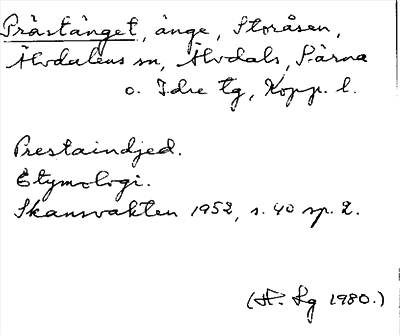 Prästänget, änge, Storåsen,
Älvdalens sn, Älvdals, Särna
o. Idre tg, Kopp. l.
Prestaindjed.
Etymologi.
Skansvakten 1952, s. 40 sp. 2.
(H. Lg 1980.)